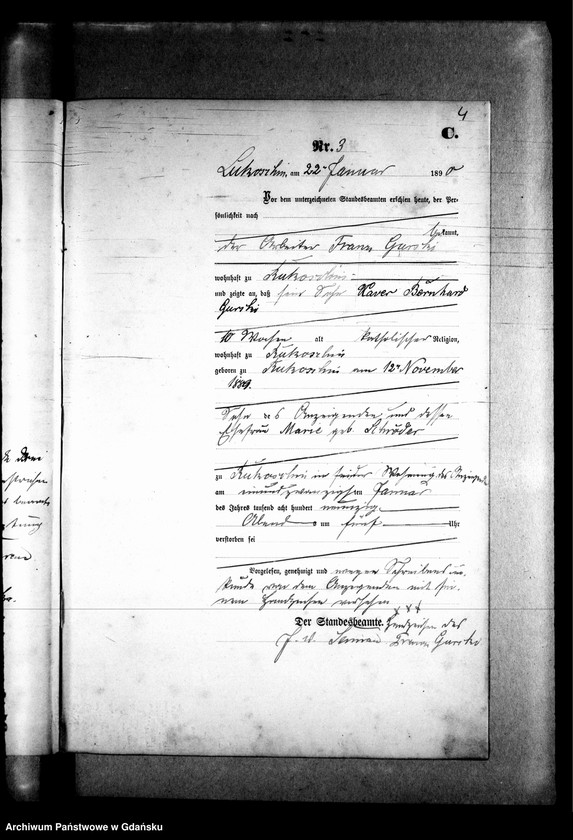 4
C.
Nr. 3
Lukoschin, am 22 Januar 1890
Vor dem unterzeichneten Standesbeamten erschien heute, der Per-
sönlichkeit nach
bekannt,
der Arbeiter Franz Gurski
wohnhaft zu Lukoschin
und zeigte an, daß sein Sohn Xaver Bernhard
Gurski
10 Wochen alt katholischer Religion,
wohnhaft zu Lukoschin
geboren zu Lukoschin am 12 November
1889
Sohn des Anzeigenden und dessen
Ehefrau Marie geb. Schröder
zu Lukoschin in seiner Wohnung des
am einundzwanzigsten Januar
des Jahres tausend acht hundert neunzig
Abend um fünf Uhr
verstorben sei
Vorgelesen, genehmigt und wegen Schreibensun-
kunde von dem Anzeigenden mit sei-
nem Handzeichen versehen
x x x
Der Standesbeamte. Handzeichen des
Franz Gurski
Archiwum Państwowe w Gdańsku